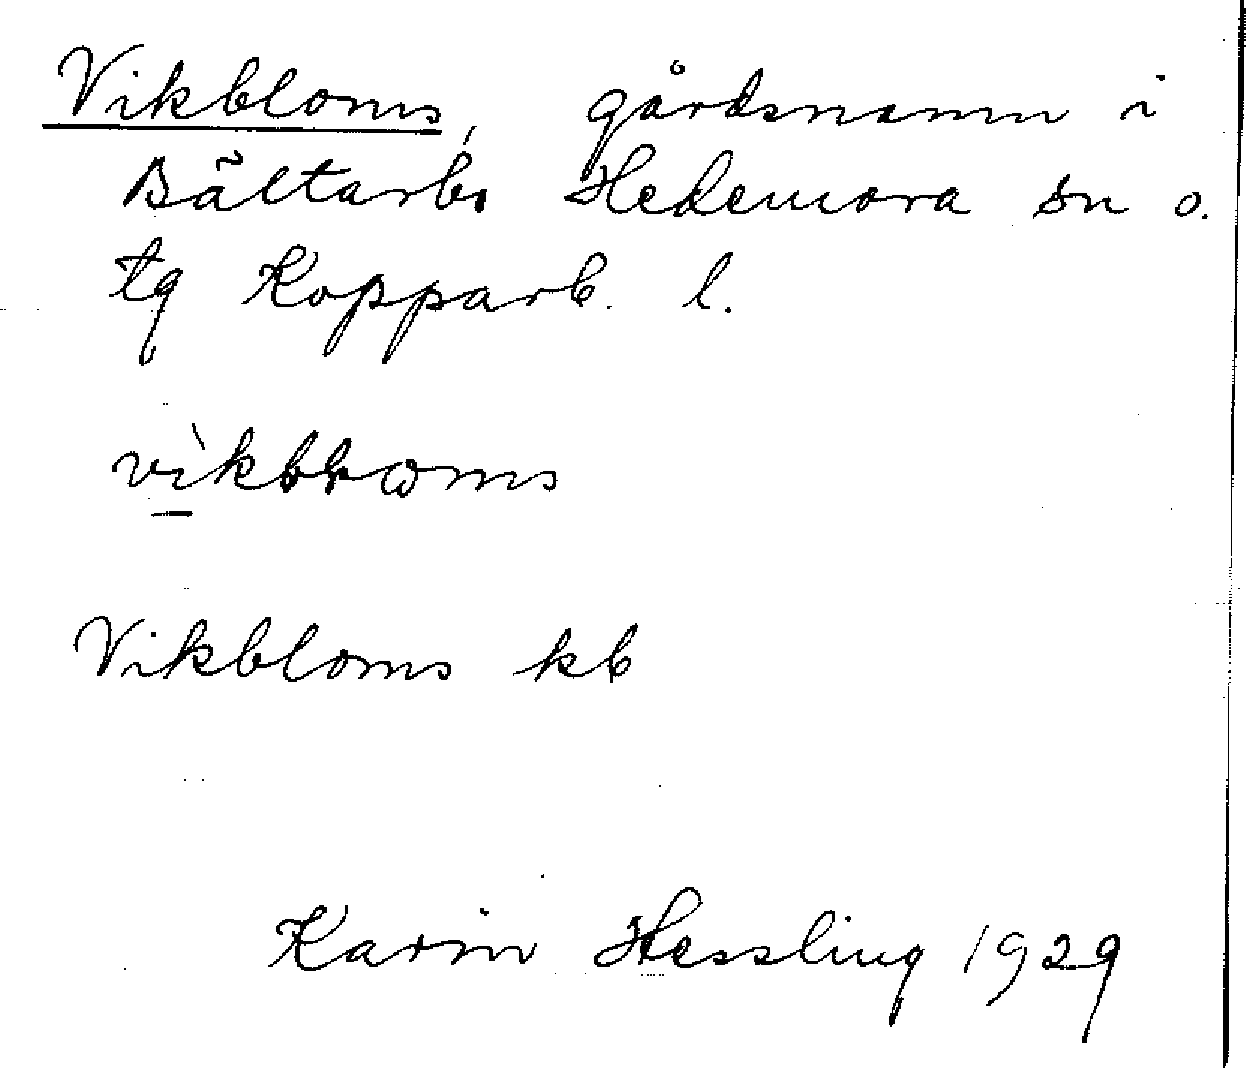 Vikbloms, gårdsnamn i
Bältarbo Hedemora sn o.
tg Kopparb. l.
Vikbloms kb
Karin Hessling 1929